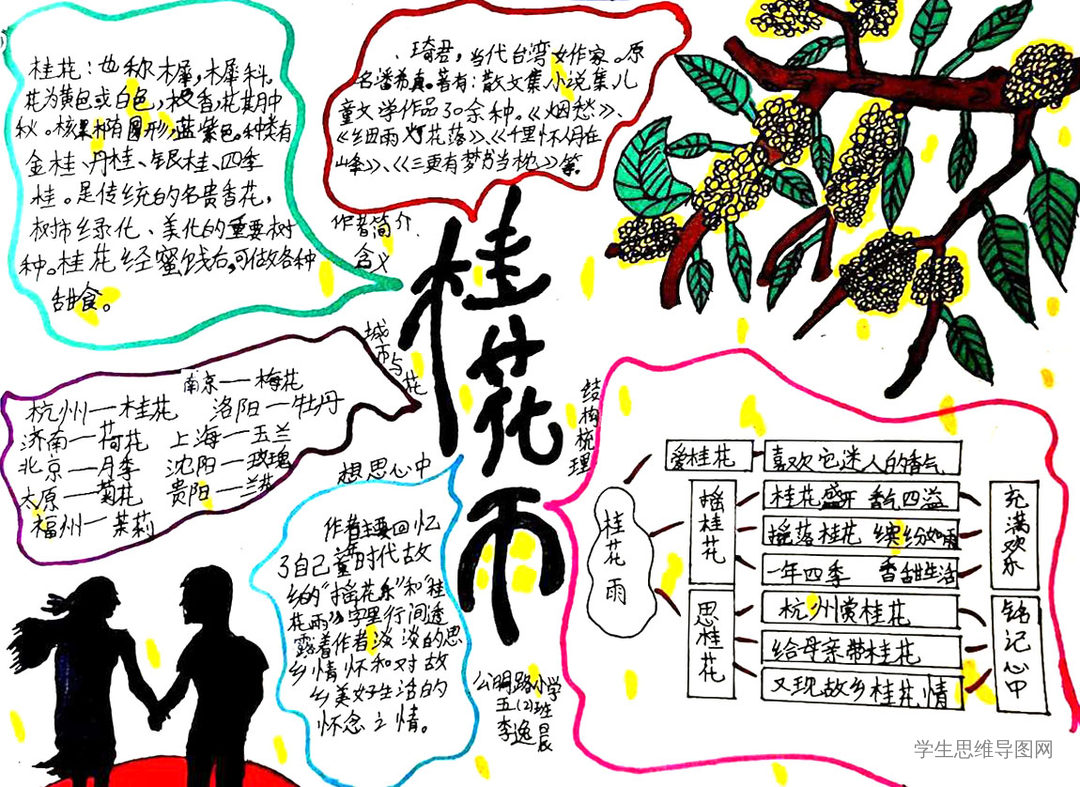 桂花：也称木犀，木犀科。
花为黄色或白色，极香，花期中
秋。核果椭圆形，蓝紫色。种类有
金桂、丹桂、银桂、四季
桂。是传统的名贵香花，
树市绿化、美化的重要树
种。桂花经蜜饯后，可做各种
甜食。
琦君，当代台湾女作家。原
名潘希真。著有：散文集、小说集、儿
童文学作品30余种。《烟愁》、
《细雨灯花落》、《千里怀人月在
峰》、《三更有梦书当枕》等。
作者简介
含义
桂花雨
城市与花
南京—梅花
杭州—桂花 洛阳—牡丹
济南—荷花 上海—玉兰
北京—月季 沈阳—玫瑰
太原—菊花 贵阳—兰花
福州—茉莉
想思心中
作者主要回忆
了自己童时代故
乡的“摇花乐”和“桂
花雨”。字里行间透
露着作者淡淡的思
乡情怀和对故
乡美好生活的
怀念之情。
公明路小学
五(2)班
李逸晨
结构梳理
桂花雨
爱桂花 喜欢它迷人的香气
摇桂花
桂花盛开 香气四溢
摇落桂花 缤纷如雨
一年四季 香甜生活
充满欢乐
思桂花
杭州赏桂花
给母亲带桂花
又现故乡桂花情
铭记心中
学生思维导图网